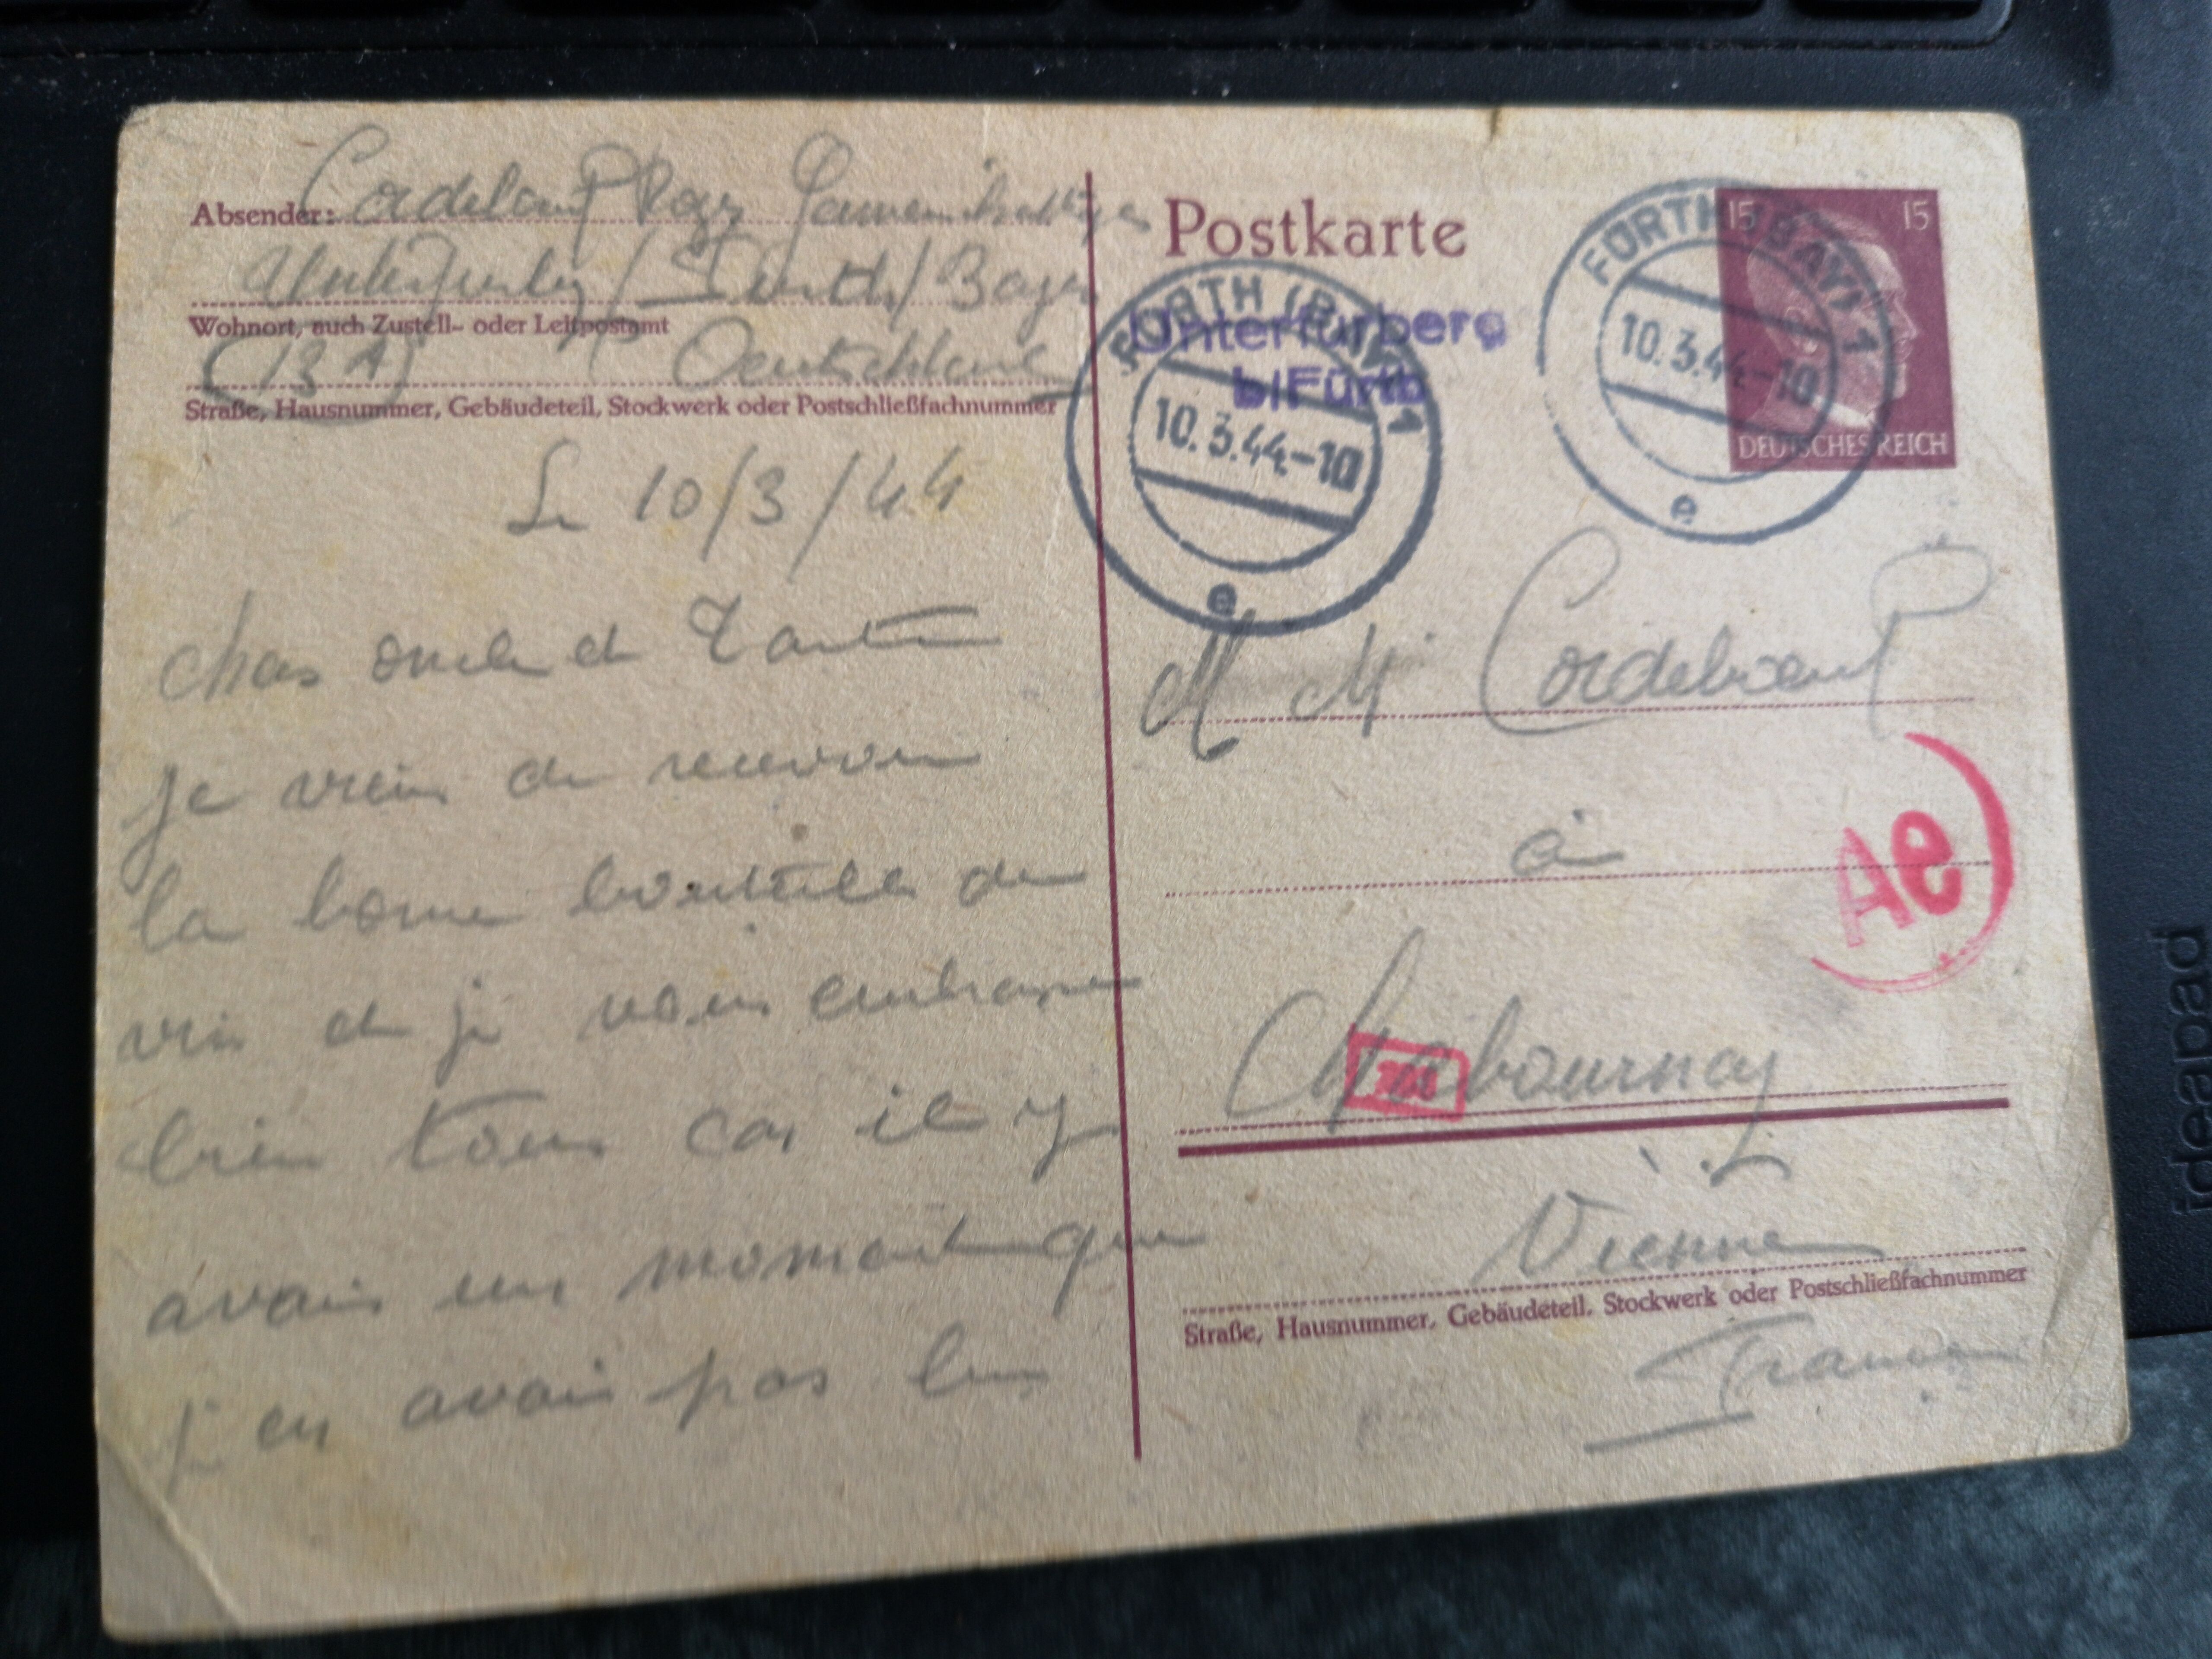 Absender: Cordeboeuf Roger
Unterfürberg / Fürth / Bayern
Wohnort, auch Zustell- oder Leitpostamt
(13 A) Deutschland
Straße, Hausnummer, Gebäudeteil, Stockwerk oder Postschließfachnummer
Le 10/3/44
chers oncle et Tante
je viens de recevoir
la bonne bouteille de
vin et je vous embrasse
bien tous car il y
avais un moment que
j en avais pas bu
Postkarte
Unterfürberg
b/Fürth
FÜRTH (BAY) 1
10.3.44-10
e
FÜRTH (BAY) 1
10.3.44-10
e
15 15
DEUTSCHES REICH
M Mr Cordeboeuf
à
Ae
Chabournay
Vienne
Straße, Hausnummer, Gebäudeteil, Stockwerk oder Postschließfachnummer
France
ideapad